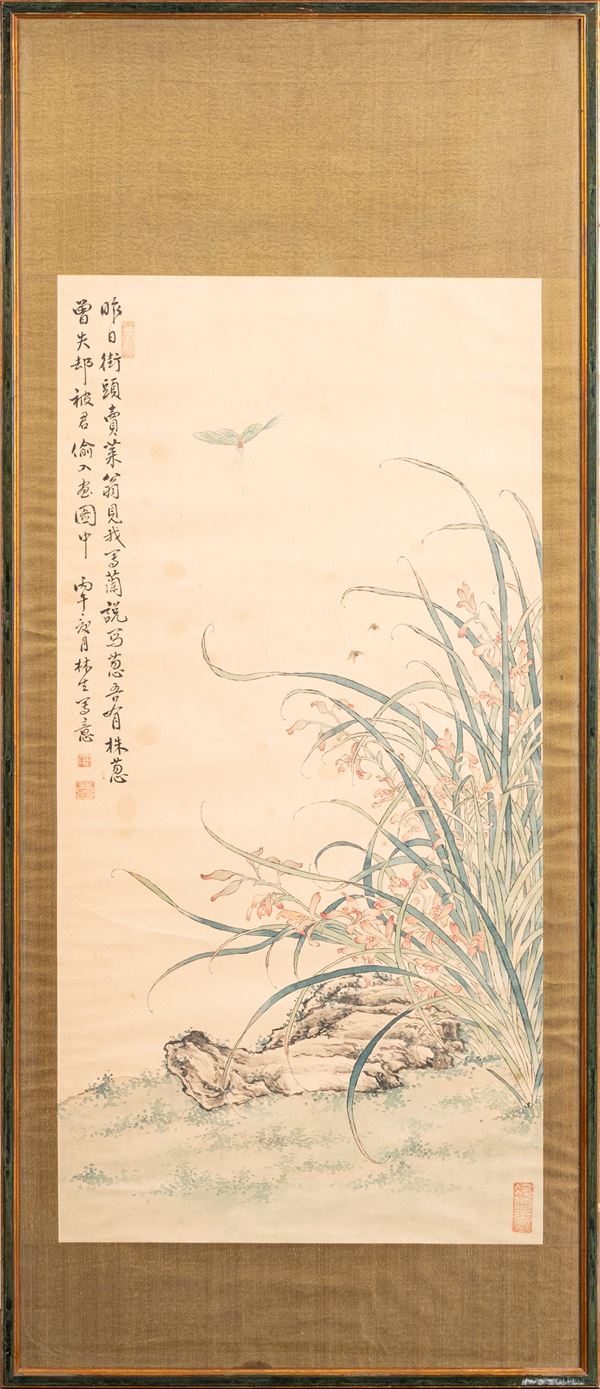 昨日街頭賣菜翁見我写蘭說写蔥吾有株蔥
曾失却被君偷入画圖中 丙午夏月林生写意